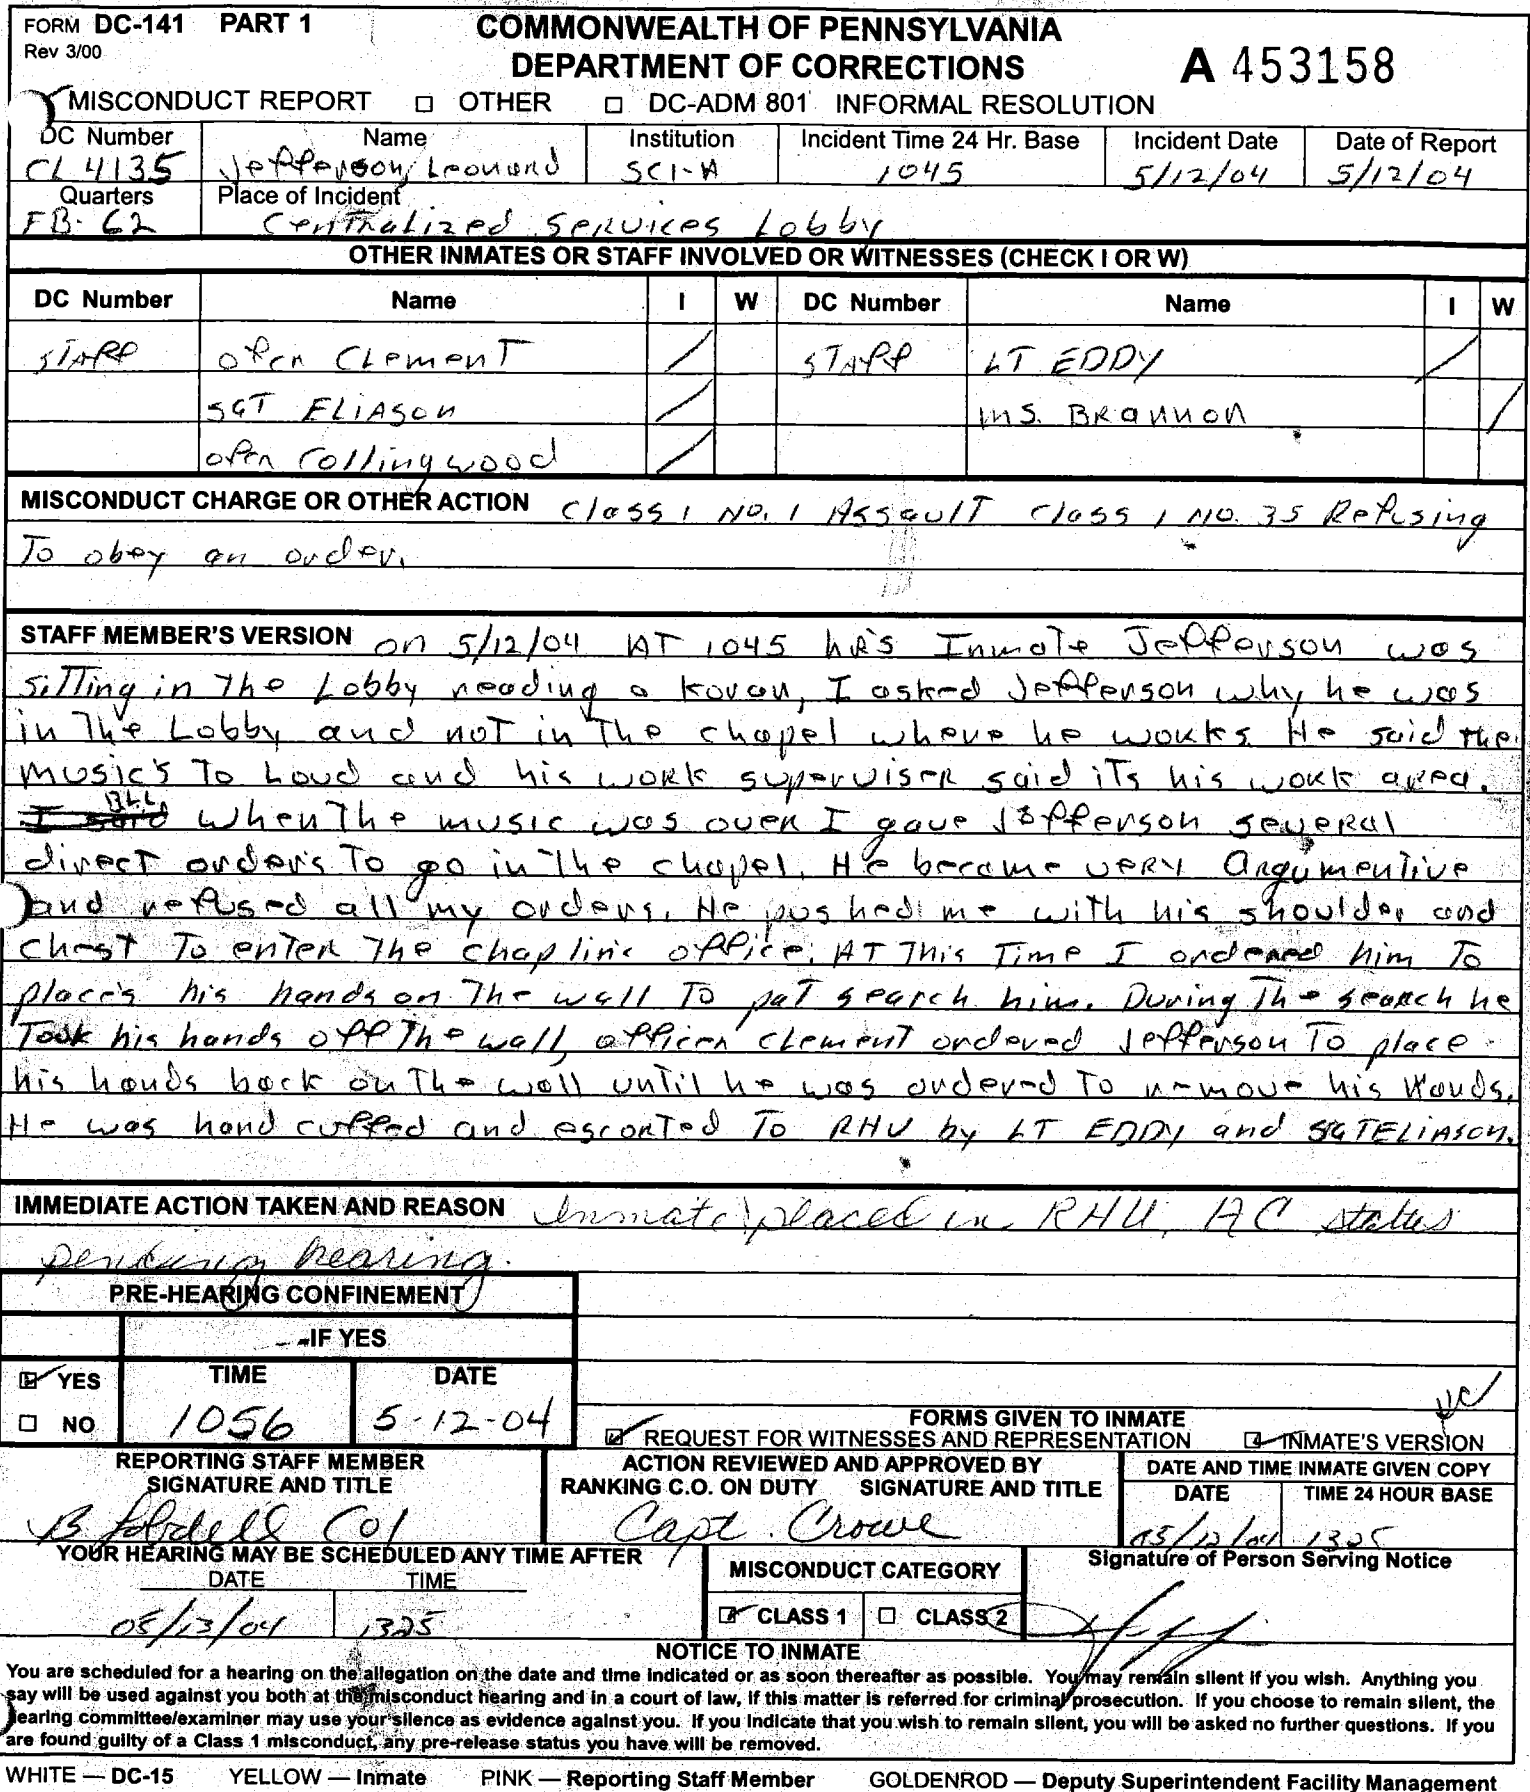 FORM DC-141 PART 1 COMMONWEALTH OF PENNSYLVANIA
Rev 3/00 DEPARTMENT OF CORRECTIONS A 453158
MISCONDUCT REPORT □ OTHER □ DC-ADM 801 INFORMAL RESOLUTION
DC Number Name Institution Incident Time 24 Hr. Base Incident Date Date of Report
CL 4135 Jefferson, Leonard SCI-A 1045 5/12/04 5/12/04
Quarters Place of Incident
FB-62 Centralized Services Lobby
OTHER INMATES OR STAFF INVOLVED OR WITNESSES (CHECK I OR W)
DC Number Name I W DC Number Name I W
STAFF Ofcr Clement / STAFF LT EDDY /
SGT ELIASON / MS. BRANNON /
Ofcr Collingwood /
MISCONDUCT CHARGE OR OTHER ACTION Class 1 No. 1 Assault Class 1 No. 35 Refusing
To obey an order.
STAFF MEMBER'S VERSION on 5/12/04 AT 1045 hrs Inmate Jefferson was
sitting in The Lobby reading a Koran, I asked Jefferson why he was
in The Lobby and not in The chapel where he works. He said the
music's To Loud and his work superviser said its his work area.
I said BLL when The music was over I gave Jefferson several
direct order's To go in The chapel. He became very Argumentive
and refused all my orders. He pushed me with his shoulder and
chest To enter The chaplin's office. AT This Time I ordered him To
place's his hands on The wall To pat search him. During The search he
Took his hands off The wall, officer Clement ordered Jefferson To place
his hands back on The wall until he was ordered To remove his Hands.
He was hand cuffed and escorted To RHU by LT EDDY and SGT ELIASON.
IMMEDIATE ACTION TAKEN AND REASON Inmate placed in RHU, AC status
pending hearing.
PRE-HEARING CONFINEMENT
IF YES
YES TIME DATE
□ NO 1056 5-12-04
FORMS GIVEN TO INMATE
REQUEST FOR WITNESSES AND REPRESENTATION INMATE'S VERSION
REPORTING STAFF MEMBER ACTION REVIEWED AND APPROVED BY DATE AND TIME INMATE GIVEN COPY
SIGNATURE AND TITLE RANKING C.O. ON DUTY SIGNATURE AND TITLE DATE TIME 24 HOUR BASE
CO1 Capt. Crowe 05/12/04 1325
YOUR HEARING MAY BE SCHEDULED ANY TIME AFTER MISCONDUCT CATEGORY Signature of Person Serving Notice
DATE TIME
05/13/04 1325 CLASS 1 □ CLASS 2
NOTICE TO INMATE
You are scheduled for a hearing on the allegation on the date and time indicated or as soon thereafter as possible. You may remain silent if you wish. Anything you
say will be used against you both at the misconduct hearing and in a court of law, if this matter is referred for criminal prosecution. If you choose to remain silent, the
hearing committee/examiner may use your silence as evidence against you. If you indicate that you wish to remain silent, you will be asked no further questions. If you
are found guilty of a Class 1 misconduct, any pre-release status you have will be removed.
WHITE — DC-15 YELLOW — Inmate PINK — Reporting Staff Member GOLDENROD — Deputy Superintendent Facility Management